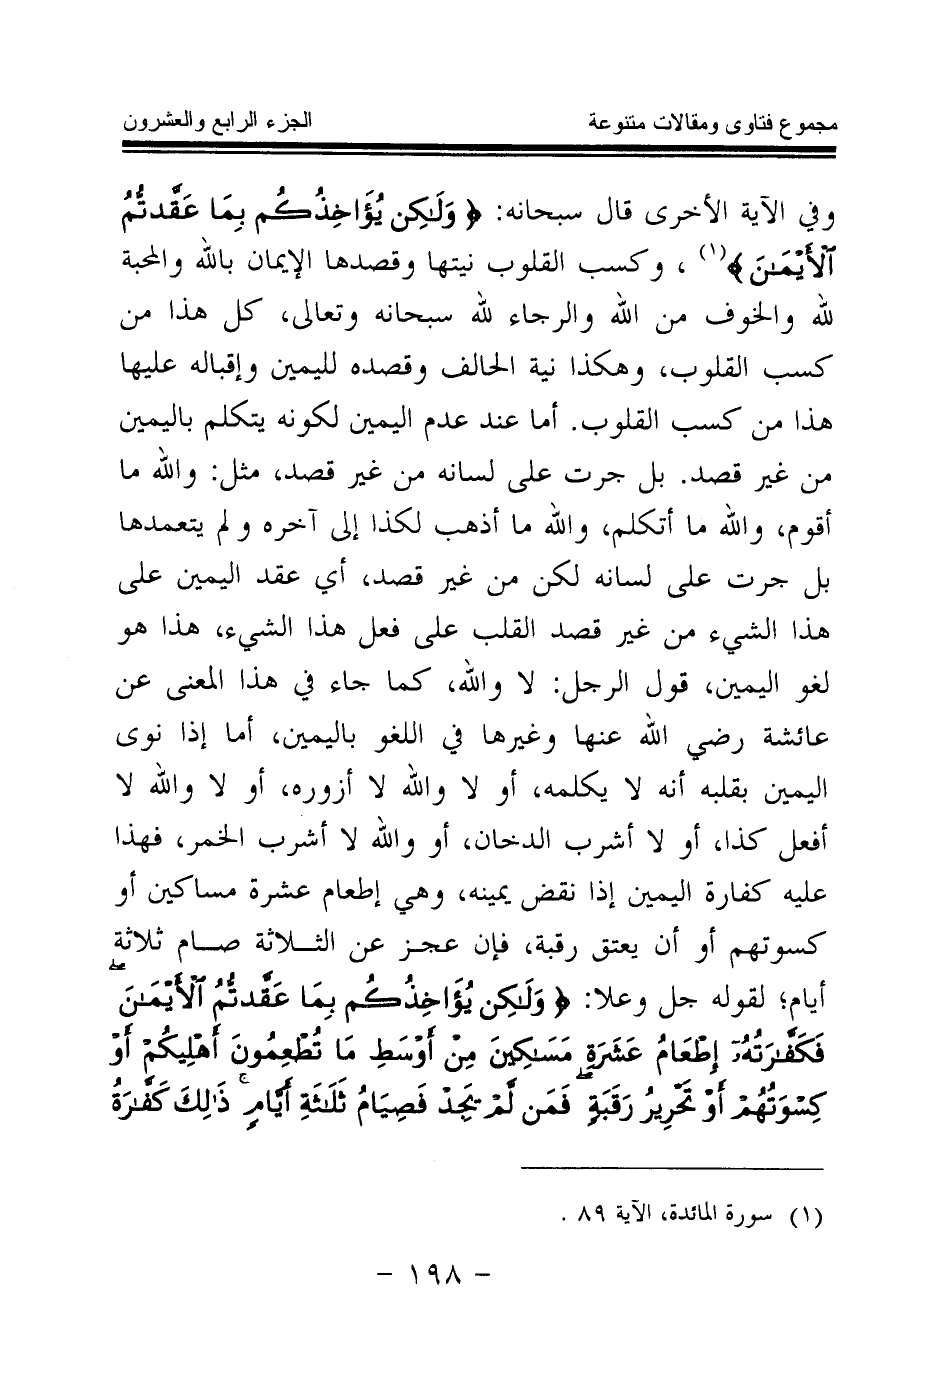 مجموع فتاوى ومقالات متنوعة الجزء الرابع والعشرون
وفي الآية الأخرى قال سبحانه: ﴿ وَلَٰكِن يُؤَاخِذُكُم بِمَا عَقَّدتُّمُ
ٱلْأَيْمَٰنَ ﴾(١) ، وكسب القلوب نيتها وقصدها الإيمان بالله والمحبة
لله والخوف من الله والرجاء لله سبحانه وتعالى، كل هذا من
كسب القلوب، وهكذا نية الحالف وقصده لليمين وإقباله عليها
هذا من كسب القلوب. أما عند عدم اليمين لكونه يتكلم باليمين
من غير قصد. بل جرت على لسانه من غير قصد، مثل: والله ما
أقوم، والله ما أتكلم، والله ما أذهب لكذا إلى آخره ولم يتعمدها
بل جرت على لسانه لكن من غير قصد، أي عقد اليمين على
هذا الشيء من غير قصد القلب على فعل هذا الشيء، هذا هو
لغو اليمين، قول الرجل: لا والله، كما جاء في هذا المعنى عن
عائشة رضي الله عنها وغيرها في اللغو باليمين، أما إذا نوى
اليمين بقلبه أنه لا يكلمه، أو لا والله لا أزوره، أو لا والله لا
أفعل كذا، أو لا أشرب الدخان، أو والله لا أشرب الخمر، فهذا
عليه كفارة اليمين إذا نقض يمينه، وهي إطعام عشرة مساكين أو
كسوتهم أو أن يعتق رقبة، فإن عجز عن الثلاثة صام ثلاثة
أيام؛ لقوله جل وعلا: ﴿ وَلَٰكِن يُؤَاخِذُكُم بِمَا عَقَّدتُّمُ ٱلْأَيْمَٰنَۖ
فَكَفَّٰرَتُهُۥٓ إِطْعَامُ عَشَرَةِ مَسَٰكِينَ مِنْ أَوْسَطِ مَا تُطْعِمُونَ أَهْلِيكُمْ أَوْ
كِسْوَتُهُمْ أَوْ تَحْرِيرُ رَقَبَةٍۖ فَمَن لَّمْ يَجِدْ فَصِيَامُ ثَلَٰثَةِ أَيَّامٍۚ ذَٰلِكَ كَفَّٰرَةُ
(١) سورة المائدة، الآية ٨٩ .
– ١٩٨ –